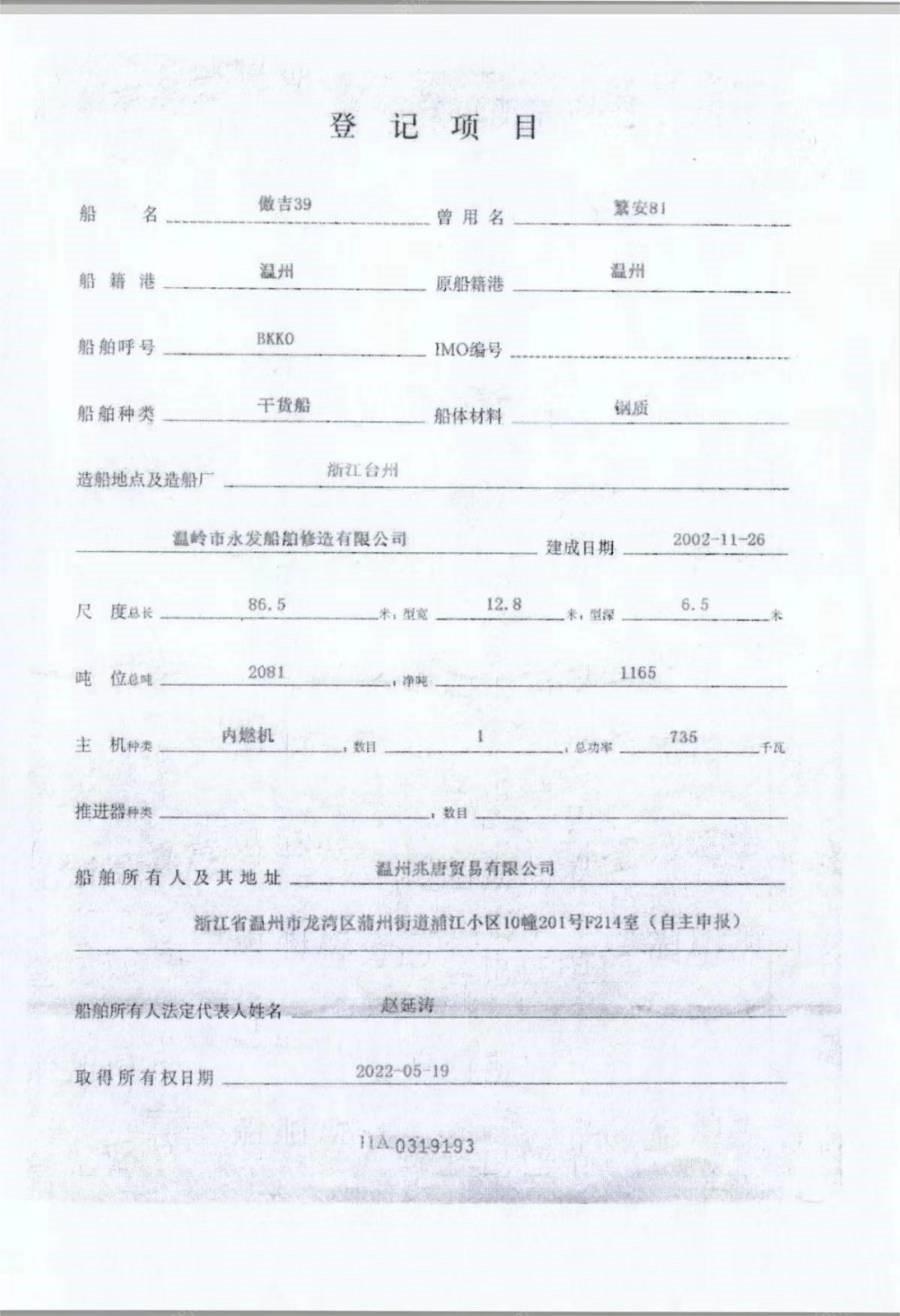 登记项目
船名 傲吉39 曾用名 繁安81
船籍港 温州 原船籍港 温州
船舶呼号 BKKO IMO编号
船舶种类 干货船 船体材料 钢质
造船地点及造船厂 浙江台州
温岭市永发船舶修造有限公司 建成日期 2002-11-26
尺度总长 86.5 米,型宽 12.8 米,型深 6.5 米
吨位总吨 2081 ,净吨 1165
主机种类 内燃机 ,数目 1 ,总功率 735 千瓦
推进器种类 ,数目
船舶所有人及其地址 温州兆唐贸易有限公司
浙江省温州市龙湾区蒲州街道浦江小区10幢201号F214室(自主申报)
船舶所有人法定代表人姓名 赵延涛
取得所有权日期 2022-05-19
0319193